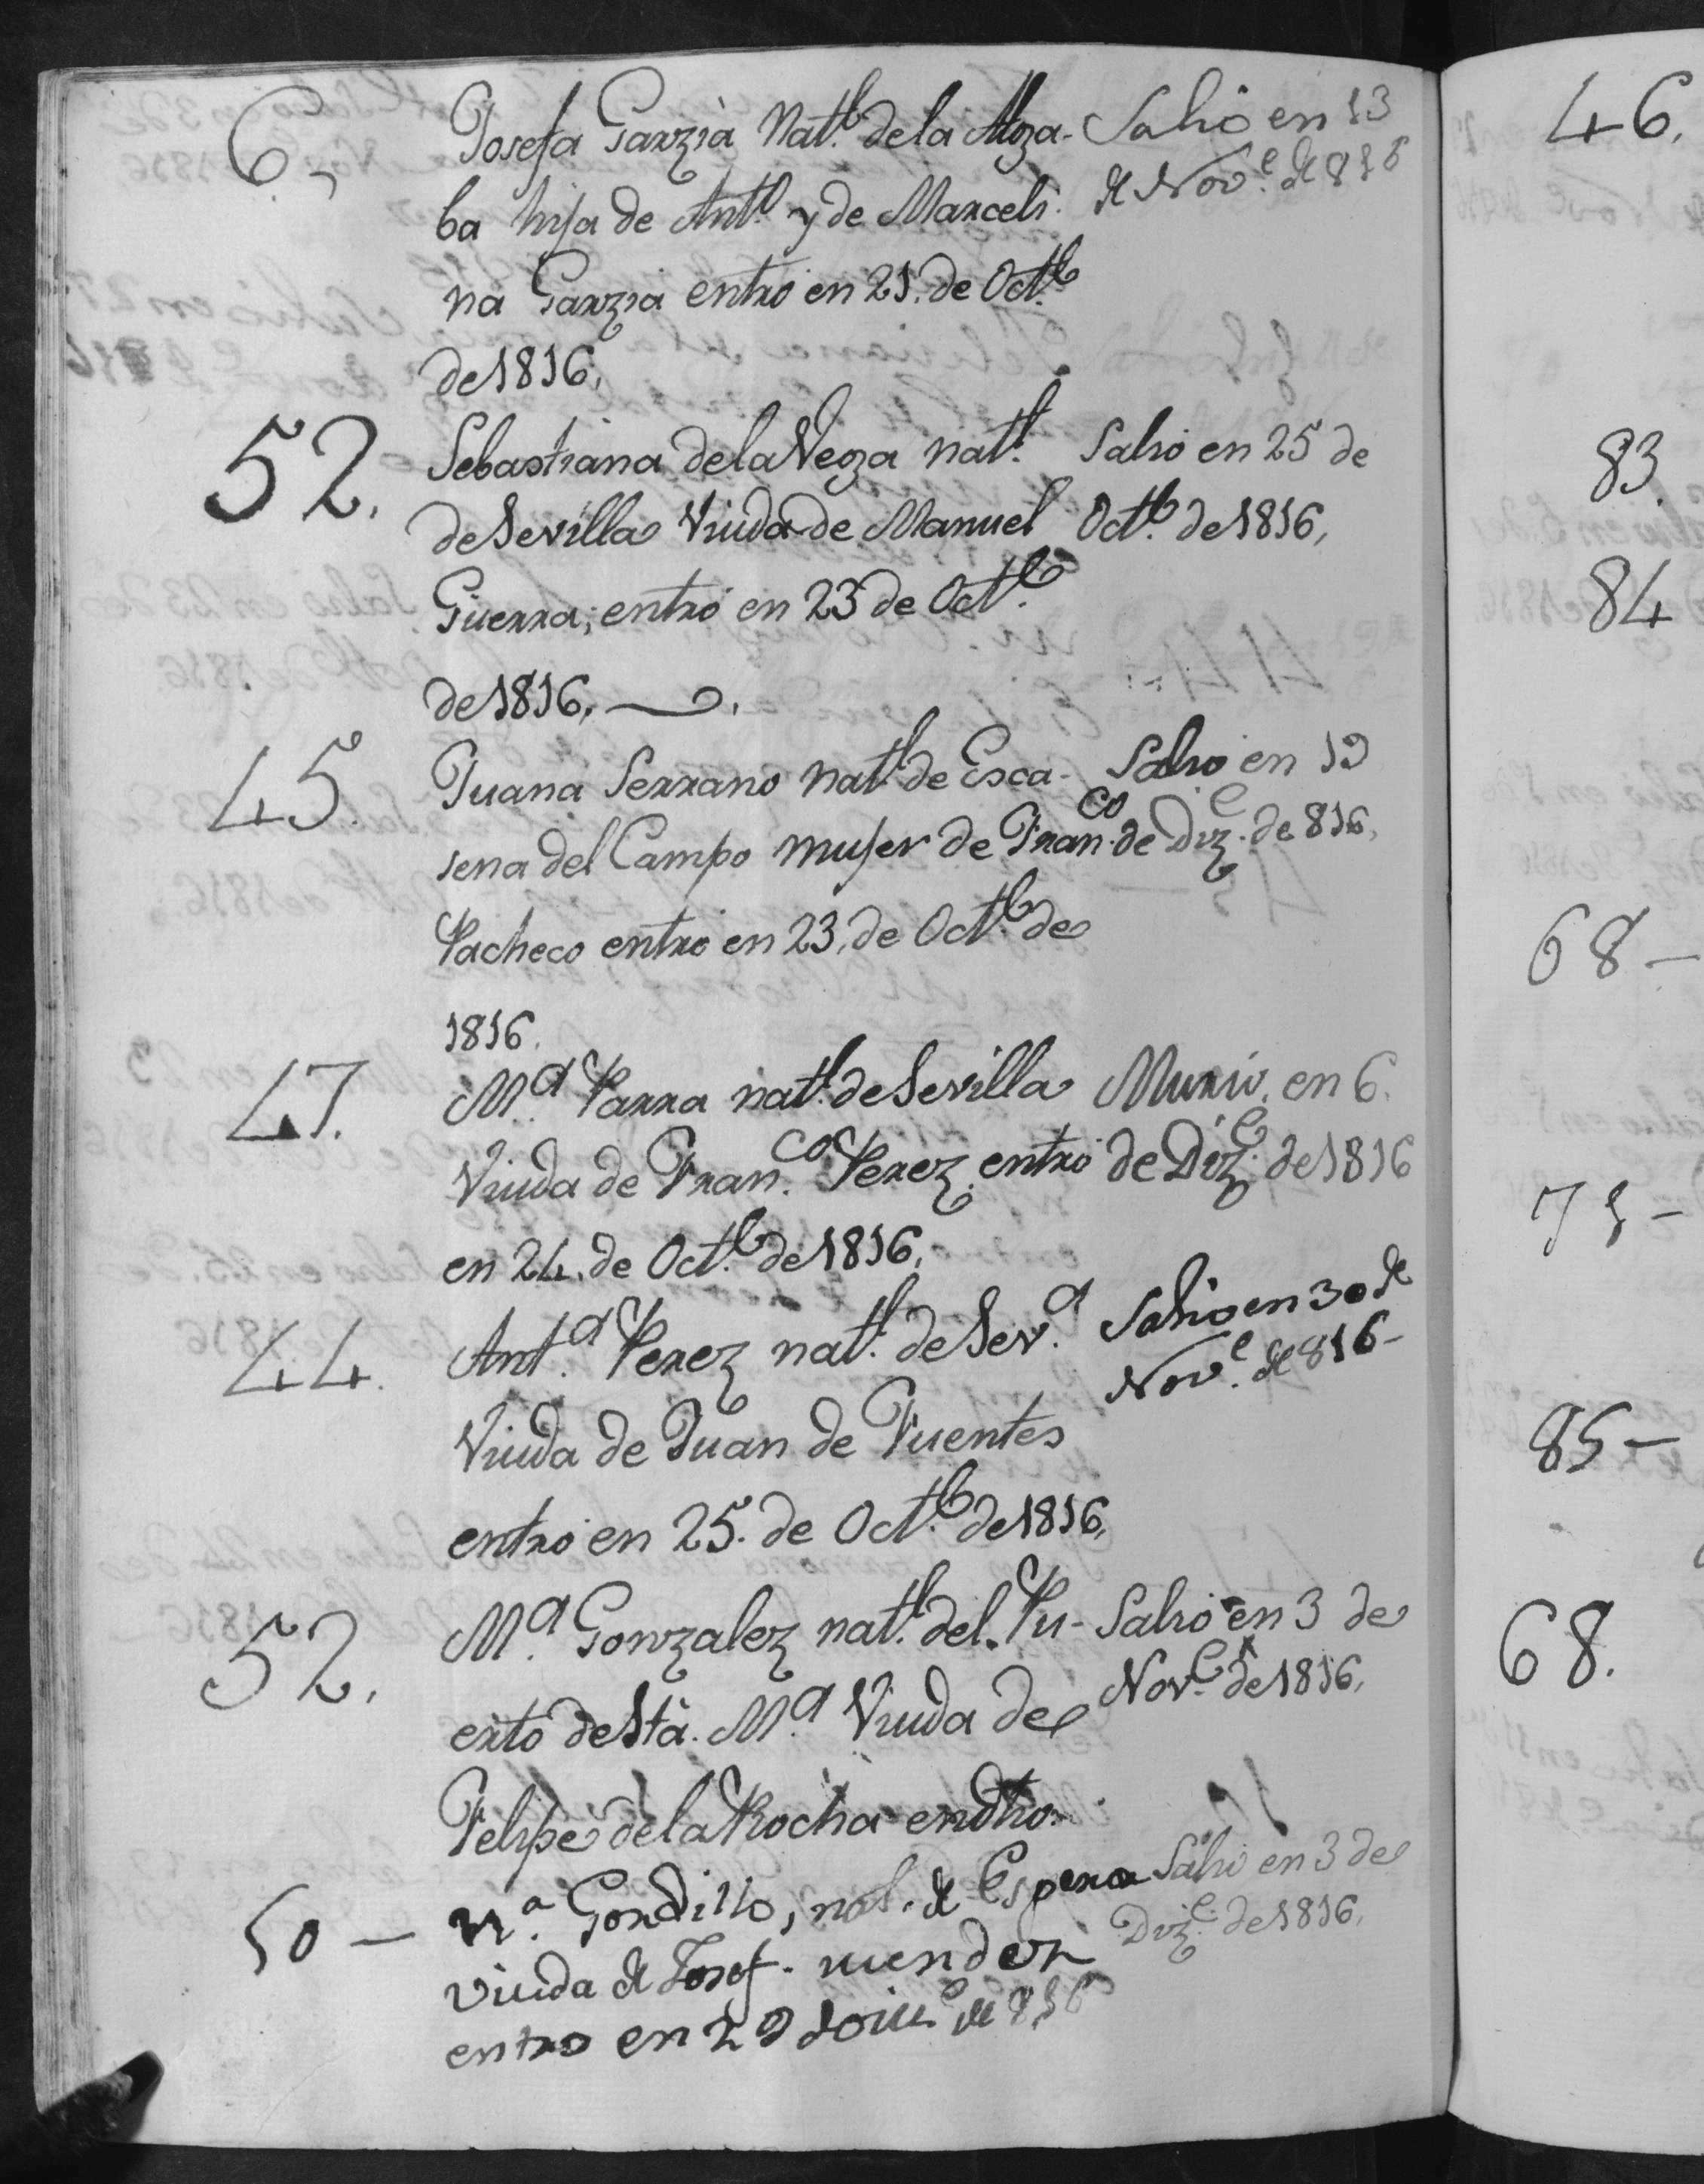 6,
Josefa Garzia Natl. de la Alga-
ba hija de Antº. y de Marceli-
na Garzia entro en 21. de Octb.
de 1816,
Salio en 13
de Nove. de 816
52.
Sebastiana de la Vega natl.
de Sevilla Viuda de Manuel
Guerra; entró en 23 de Octb.
de 1816,
Salio en 25 de
Octb. de 1816,
45.
Juana Serrano natl. de Esca-
sena del Campo mujer de Franco.
Pacheco entro en 23, de Octb. de
1816.
Salio en 19
de Dize. de 816,
47.
Ma. Parra natl. de Sevilla
Viuda de Franco. Perez, entro
en 24. de Octb. de 1816,
Murio, en 6.
de Dize. de 1816
44.
Anta. Perez natl. de Seva.
Viuda de Juan de Fuentes
entro en 25. de Octb. de 1816,
Salio en 30 de
Nove. de 816-
52.
Ma. Gonzalez natl. del Pu-
erto de Sta. Ma. Viuda de
Felipe de la Rocha en dho.
Salio en 3 de
Nove. de 1816,
50 —
Ma. Gordillo, nal. de Espera
viuda de Josef. mendez
entro en 29
de 816
Salio en 3 de
Dize. de 1816,
46.
83.
84
68 -
71 -
85 -
68.